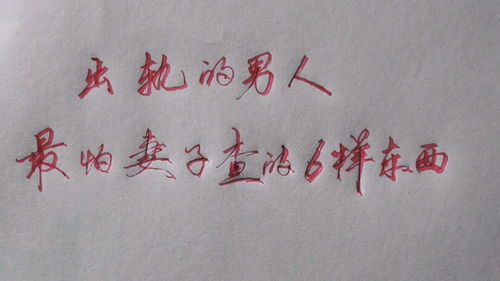 出轨的男人
最怕妻子查的6样东西